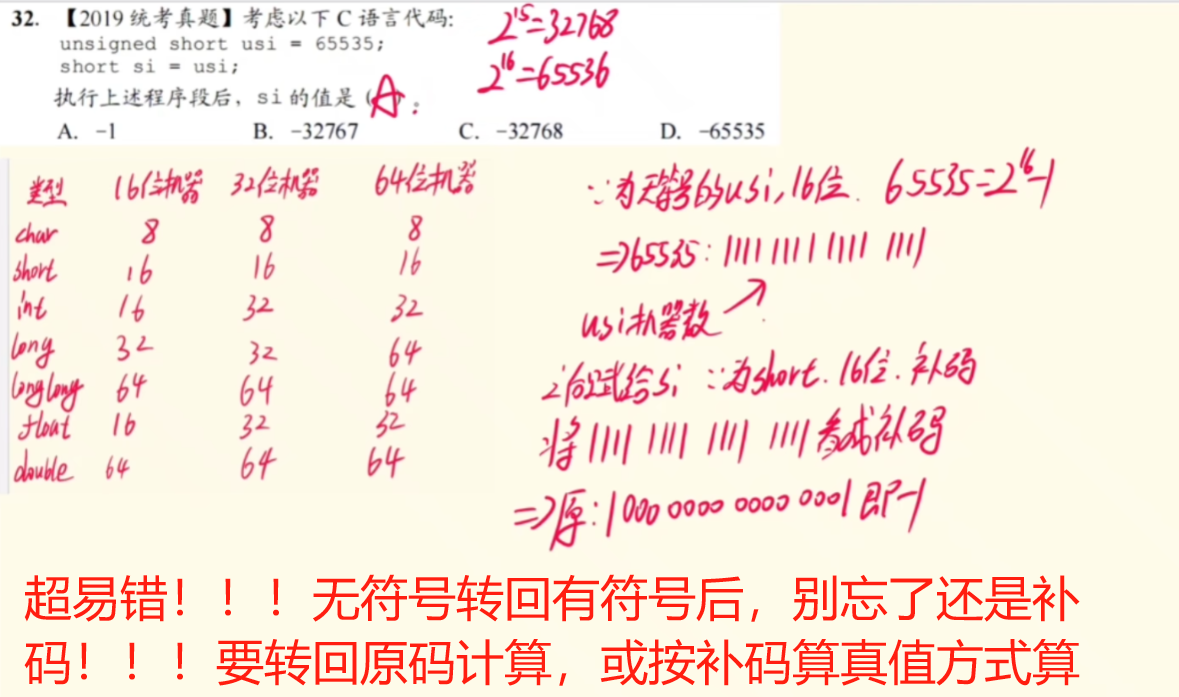 32. 【2019 统考真题】考虑以下 C 语言代码:
unsigned short usi = 65535;
short si = usi;
执行上述程序段后, si 的值是 ( A ) :
A. -1 B. -32767 C. -32768 D. -65535
2^15=32768
2^16=65536
类型 16位机器 32位机器 64位机器
char 8 8 8
short 16 16 16
int 16 32 32
long 32 32 64
longlong 64 64 64
float 16 32 32
double 64 64 64
∵为无符号的usi,16位. 65535=2^16-1
=>65535: 1111 1111 1111 1111
usi机器数
si ∵为short. 16位. 补码
将1111 1111 1111 1111看成补码
=>原:1000 0000 0000 0001即-1
超易错！！！无符号转回有符号后，别忘了还是补
码！！！要转回原码计算，或按补码算真值方式算